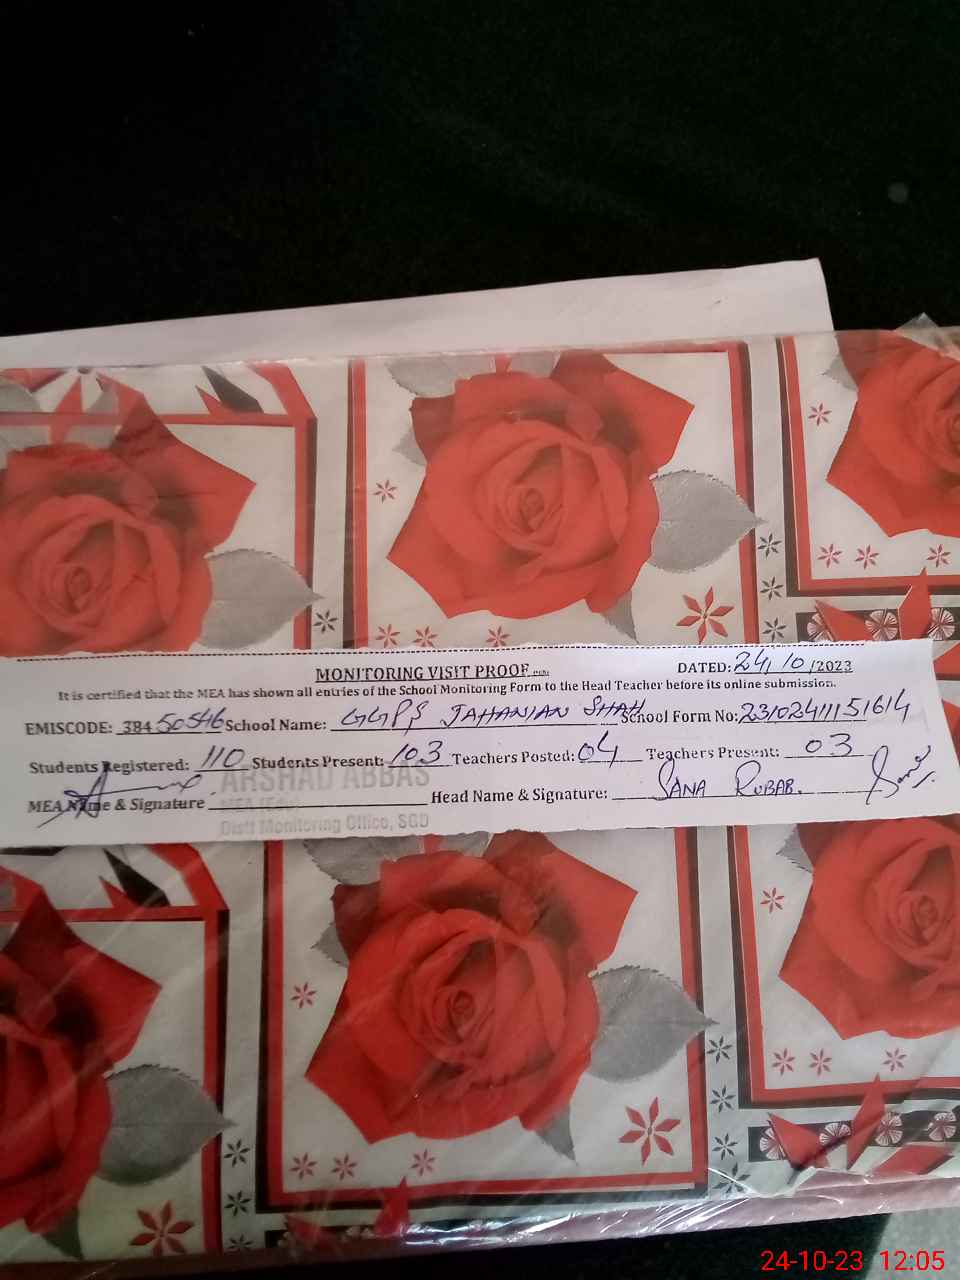 MONITORING VISIT PROOF
DATED: 24/10/2023
It is certified that the MEA has shown all entries of the School Monitoring Form to the Head Teacher before its online submission.
EMISCODE: 38450546 School Name: GGPS JAHANIAN SHAH School Form No: 23102411151614
Students Registered: 110 Students Present: 103 Teachers Posted: 04 Teachers Present: 03
MEA Name & Signature ARSHAD ABBAS Head Name & Signature: SANA RUBAB. Sana
Distt Monitoring Office, SGD
24-10-23 12:05